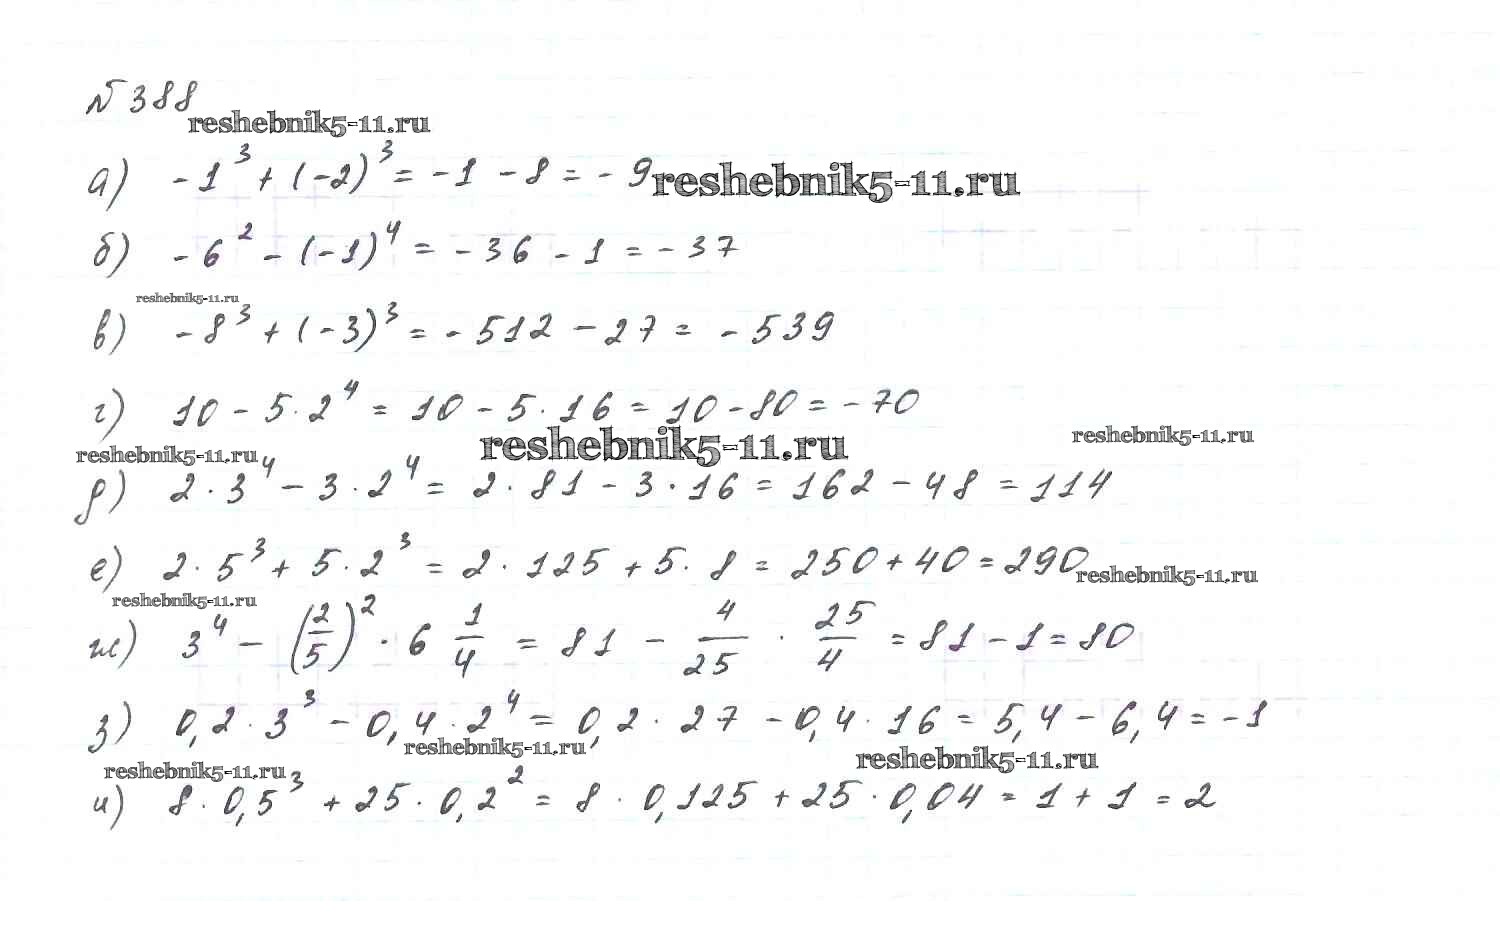 №388
reshebnik5-11.ru
а) -1³ + (-2)³ = -1 - 8 = -9
reshebnik5-11.ru
б) -6² - (-1)⁴ = -36 - 1 = -37
reshebnik5-11.ru
в) -8³ + (-3)³ = -512 - 27 = -539
г) 10 - 5·2⁴ = 10 - 5·16 = 10 - 80 = -70
reshebnik5-11.ru
reshebnik5-11.ru
reshebnik5-11.ru
д) 2·3⁴ - 3·2⁴ = 2·81 - 3·16 = 162 - 48 = 114
е) 2·5³ + 5·2³ = 2·125 + 5·8 = 250 + 40 = 290
reshebnik5-11.ru
reshebnik5-11.ru
ж) 3⁴ - (2/5)² · 6 1/4 = 81 - 4/25 · 25/4 = 81 - 1 = 80
з) 0,2·3³ - 0,4·2⁴ = 0,2·27 - 0,4·16 = 5,4 - 6,4 = -1
reshebnik5-11.ru
reshebnik5-11.ru
reshebnik5-11.ru
и) 8·0,5³ + 25·0,2² = 8·0,125 + 25·0,04 = 1 + 1 = 2